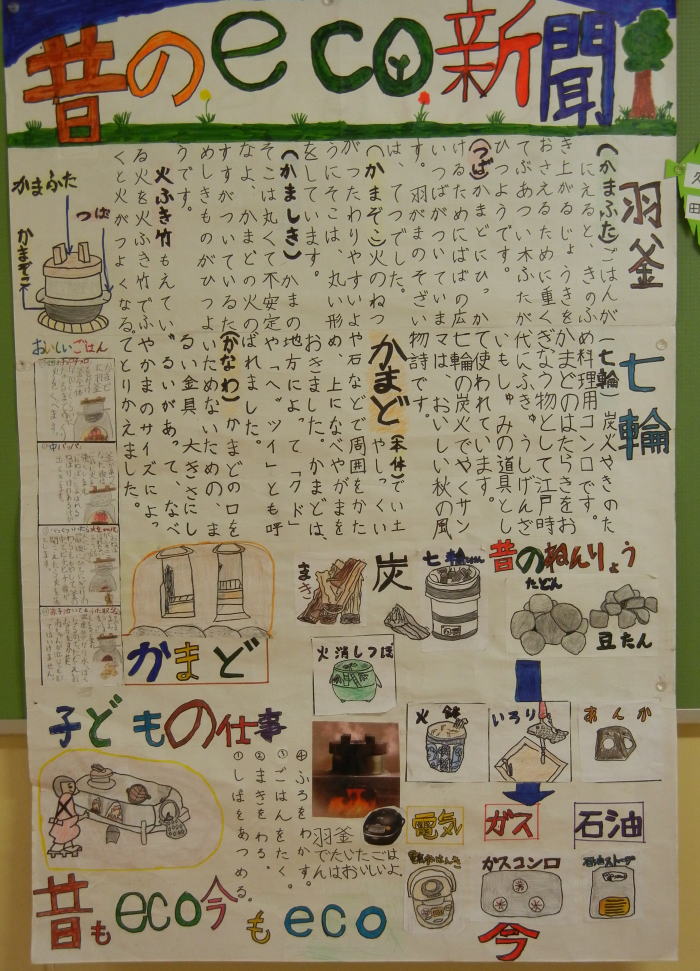 昔のeco新聞
羽釜
(かまふた)ごはんが
にえると、きのふ
き上がるじょうきを
おさえるために重く
てぶあつい木ふたが
ひつようです。
(つば)かまどにひっか
けるためにばばの広
いつばがついていま
す。羽がまのそざい
は、てつでした。
(かまぞこ)火のねつ
がつたわりやすいよ
うにそこは、丸い形
をしています。
(かましき)かまの
そこは丸くて不安定
なよ、かまどの火の
すすがついているた
めしきものがひつよ
うです。
火ふき竹 もえてい
る火を火ふき竹でふ
くと火がつよくなる。
かまふた
つば
かまぞこ
七輪
(七輪)炭火やきのた
め料理用コンロです。
かまどのはたらきをお
ぎなう物として江戸時
代にふきゅうしげんざ
いもしゅみの道具とし
て使われています。
七輪の炭火でやくサン
マは、おいしい秋の風
物詩です。
かまど(本体)でい土
やしっくい
や石などで周囲をかた
め、上になべやがまを
おきました。かまどは、
地方によって「クド」
や「ヘッツイ」とも呼
ばれました。
(かなわ)かまどの口を
いためないための、ま
るい金具、大きさにし
るいがあって、なべ
やかまのサイズによっ
てとりかえました。
おいしいごはん
中パッパ
かまど
昔のねんりょう
まき
炭
七輪
たどん
豆たん
火消しつぼ
火鉢
いろり
あんか
子どもの仕事
①しばをあつめる。
②まきをわる。
③ごはんをたく。
④ふろをわかす。
羽釜
でたいたごは
んはおいしいよ。
電気
ガス
石油
ガスコンロ
石油ストーブ
今
昔もeco今もeco
田